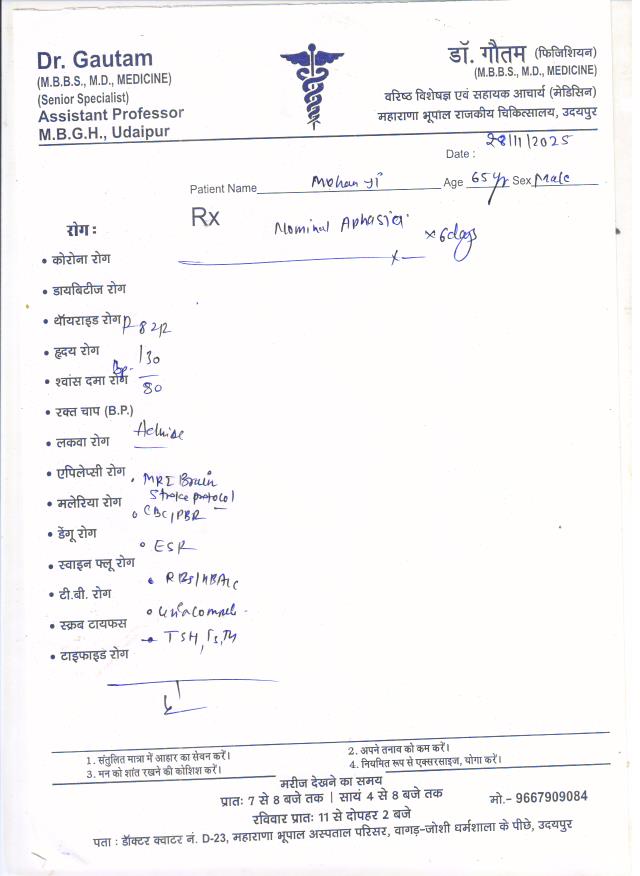 Dr. Gautam
(M.B.B.S., M.D., MEDICINE)
(Senior Specialist)
Assistant Professor
M.B.G.H., Udaipur
डॉ. गौतम (फिजिशियन)
(M.B.B.S., M.D., MEDICINE)
वरिष्ठ विशेषज्ञ एवं सहायक आचार्य (मेडिसिन)
महाराणा भूपाल राजकीय चिकित्सालय, उदयपुर
Date : 28/11/2025
Patient Name Mohan ji Age 65 yr Sex Male
Rx
Nominal Aphasia x 6 days
रोग :
• कोरोना रोग
• डायबिटीज रोग
• थॉयराइड रोग
P 82/2
• हृदय रोग
• श्वांस दमा रोग
Bp- 130/80
• रक्त चाप (B.P.)
• लकवा रोग
Advise
• एपिलेप्सी रोग
MRI Brain
Stroke protocol
• मलेरिया रोग
CBC/PBR
• डेंगू रोग
ESR
• स्वाइन फ्लू रोग
RBS/HBA1C
• टी.बी. रोग
• स्क्रब टायफस
Urine complete
TSH, T3, T4
• टाइफाइड रोग
1. संतुलित मात्रा में आहार का सेवन करें।
2. अपने तनाव को कम करें।
3. मन को शांत रखने की कोशिश करें।
4. नियमित रूप से एक्सरसाइज, योगा करें।
मरीज देखने का समय
प्रातः 7 से 8 बजे तक | सायं 4 से 8 बजे तक
मो.- 9667909084
रविवार प्रातः 11 से दोपहर 2 बजे
पता : डॉक्टर क्वाटर नं. D-23, महाराणा भूपाल अस्पताल परिसर, वागड़-जोशी धर्मशाला के पीछे, उदयपुर